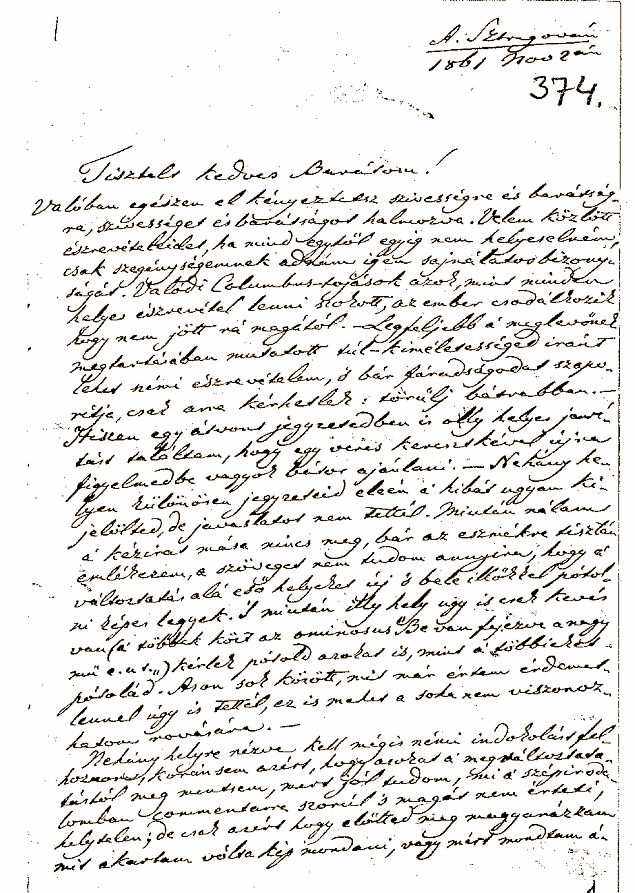 A. Sztregován
1861 Nov 2án
374.
Tisztelt kedves Barátom!
Valóban egészen el kényeztetsz szivességre és barátság-
ra, szivességet és barátságot halmozva. Velem közlött
észrevételeidet, ha mind egytől egyig nem helyeselném,
csak szegénységemnek adnám igen sajnálatos bizonyi-
ságát. Valódi Columbus-tojások azok, mint minden
helyes észrevétel lenni szokott, az ember csodálkozik
hogy nem jött rá magától. – Legfeljebb a meglevőnek
megtartásában mutatott túl-kiméletességed iránt
lehet némi észrevételem, 's bár fáradságodat szapo-
ritja, csak arra kérhetlek: törülj bátrabban. –
Hiszen egy átvont jegyzetedben is olly helyes javi-
tást találtam, hogy egy veres keresztkével ujra
figyelmedbe vagyok bátor ajánlani. – Nehány he-
lyen különösen jegyzeteid elején a hibát ugyan ki-
jelölted, de javaslatot nem tettél. Miután nálam
a kézirat mása nincs meg, bár az eszmékre tisztán
emlékezem, a szöveget nem tudom annyira, hogy a
változtatás alá eső helyeket uj 's bele illőkkel pótol-
ni képes legyek. 'S miután illy hely ugy is csak kevés
van (a többek közt az ominosus „Be van fejezve a nagy
mű e.u.t.„) kérlek pótold azokat is, mint a többieket
pótolád. Azon sok között, mit már értem érdemet-
lennel úgy is tettél, ez is mehet a soha nem viszonoz-
hatom rovására. –
Nehány helyre nézve kell mégis némi indokolást fel-
hoznom, koránsem azért, hogy azokat a megváltozta-
tástól meg mentsem, mert jól tudom, mi a szépiroda-
lomban commentárra szorúl 's magát nem érteti,
helytelen; de csak azért hogy előtted meg magyarázzam
mit akartam volta kép mondani, vagy miért mondtam á-